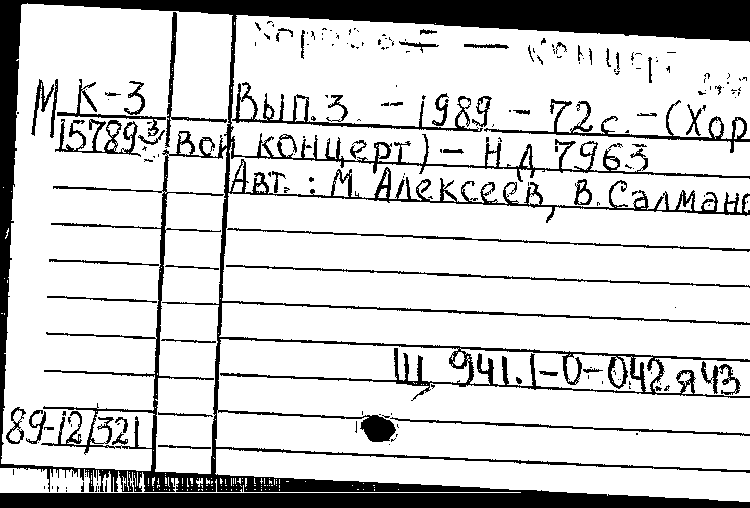 Хоровой — концерт
М К-3 Вып.3. – 1989. – 72с. – (Хор
15789³/ вой концерт) – Н.д 7963
Авт. : М. Алексеев, В. Салмано
Щ 941.1-0-042.я43
89-12/321